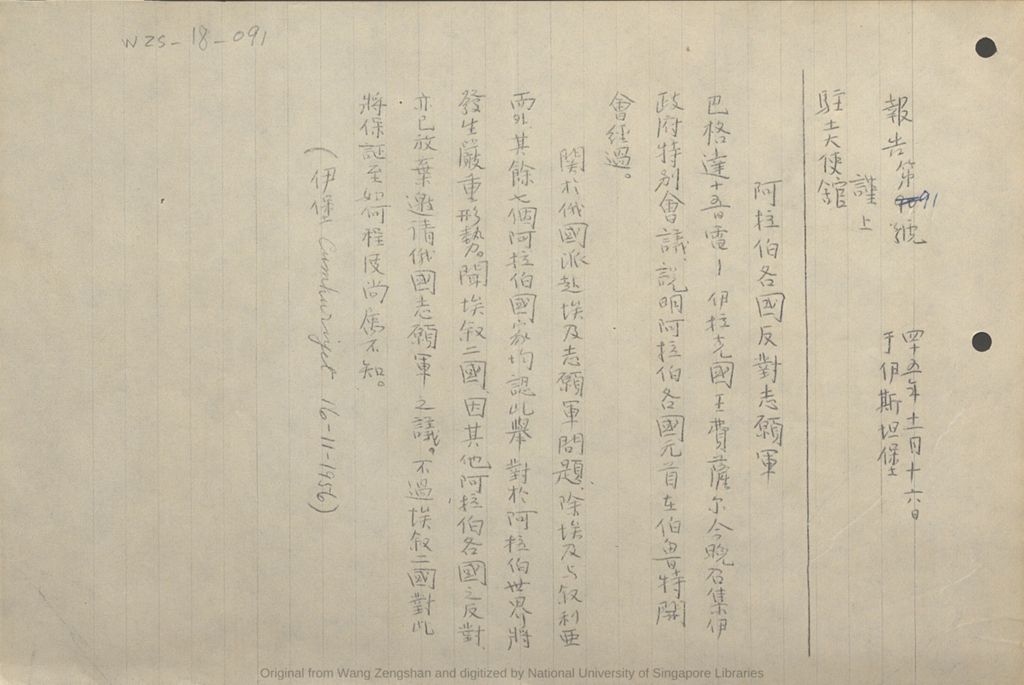 WZS-18-091
報告第91號
四十五年十一月十六日
于伊斯坦堡
謹上
駐土大使舘
阿拉伯各國反對志願軍
巴格達十五日電—伊拉克國王費薩尔今晚召集伊
政府特別會議、說明阿拉伯各國元首在伯魯特開
會經過。
関於俄國派赴埃及志願軍問題、除埃及与叙利亜
両外其餘七個阿拉伯國家均認此舉對於阿拉伯世界將
發生嚴重形勢。聞埃叙二國因其他阿拉伯各國之反對
亦已放棄邀請俄國志願軍之議。不過埃叙二國對此
將保証至如何程度尚属不知。
(伊堡 Cumhuriyet 16-11-1956)
Original from Wang Zengshan and digitized by National University of Singapore Libraries